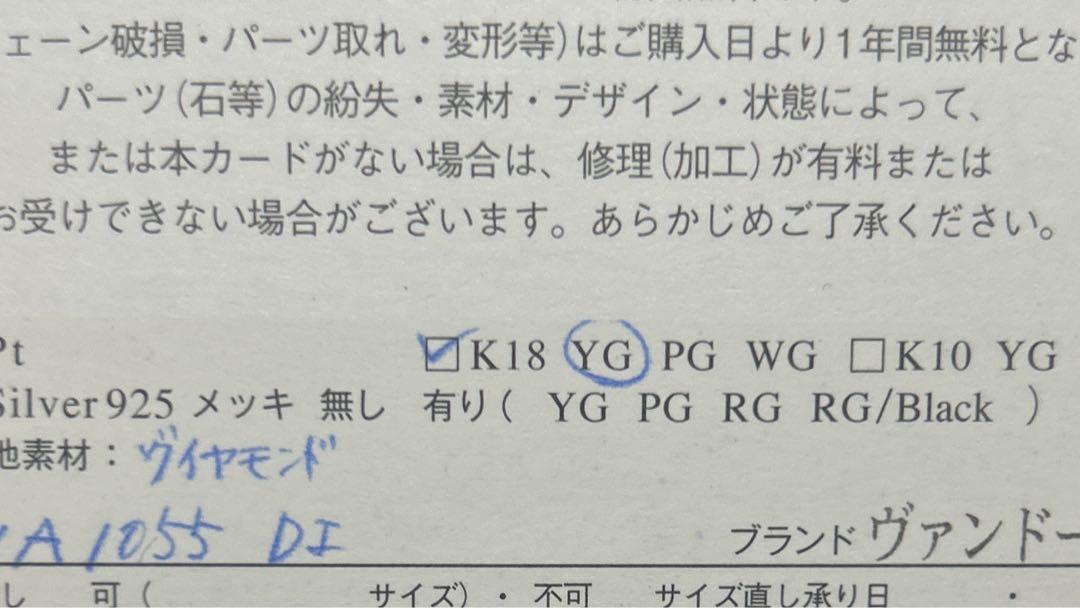 ェーン破損・パーツ取れ・変形等)はご購入日より1年間無料とな
パーツ(石等)の紛失・素材・デザイン・状態によって、
または本カードがない場合は、修理(加工)が有料または
お受けできない場合がございます。あらかじめご了承ください。
Pt ☑K18 YG PG WG □K10 YG
Silver925 メッキ 無し 有り( YG PG RG RG/Black )
他素材：ダイヤモンド
A 1055 DI ブランド ヴァンドー
し 可( サイズ)・不可 サイズ直し承り日 ・